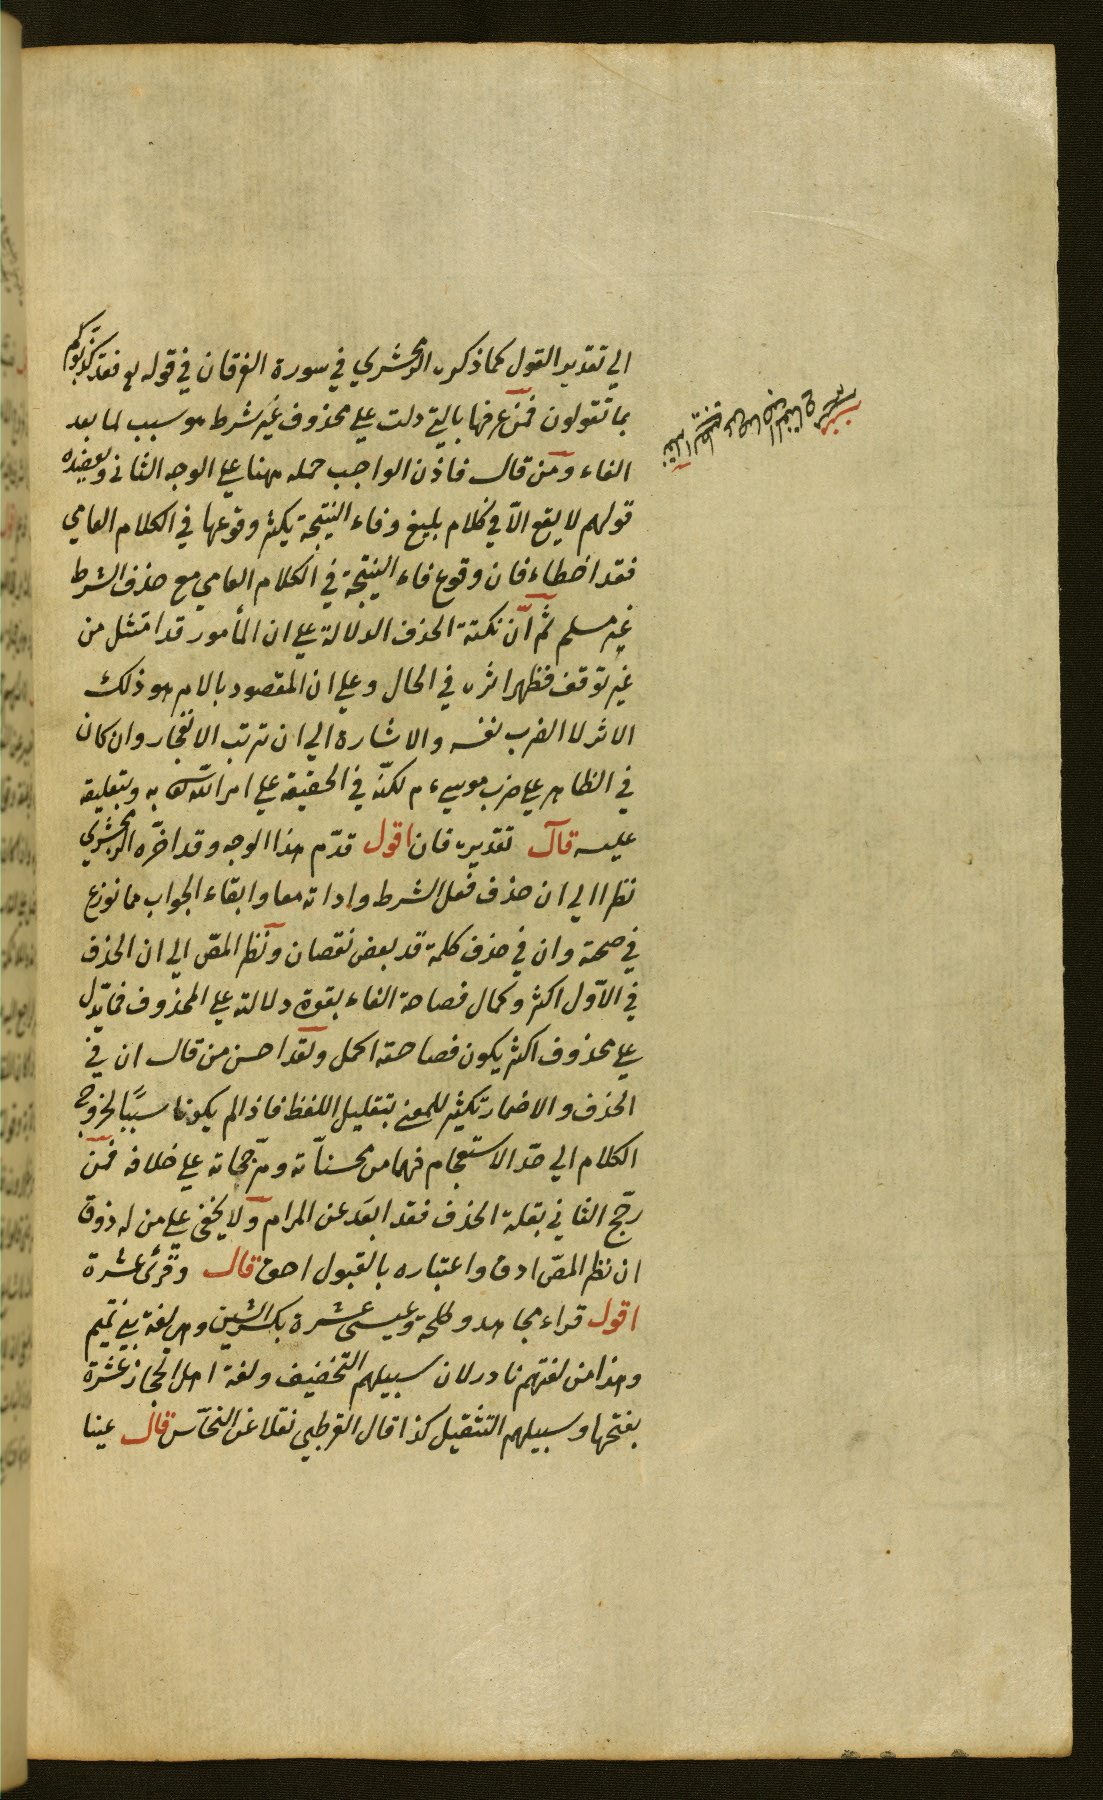 الي تقدير القول كما ذكره الزمخشري في سورة الفرقان في قوله تع فقد كذبوكم
بما تقولون فمن عرفها بالتي دلت علي محذوف غير شرط هو سبب لما بعد
الفاء ومن قال فاذن الواجب حمله ههنا علي الوجه الثاني ويعضده
قولهم لا يقع الا في كلام بليغ وفاء النتيجة يكثر وقوعها في الكلام العامي
فقد اخطاء فان وقوع فاء النتيجة في الكلام العامي مع حذف الشرط
غير مسلم ثم ان نكتة الحذف الدلالة علي ان المأمور قد امتثل من
غير توقف فظهر اثره في الحال وعلي ان المقصود بالامر هو ذلك
الاثر لا الضرب نفسه والاشارة الي ان ترتب الانفجار وان كان
في الظاهر علي ضرب موسي ء م لكنه في الحقيقة علي امر الله تع به وبتعليقه
عليه قال تقديره فان اقول قدم هذا الوجه وقد اخره الزمخشري
نظرا الي ان حذف فعل الشرط واداته معا وابقاء الجواب مما نوزع
في صحته وان في حذف كلمة قد بعض نقصان ونظر المص الي ان الحذف
في الاول اكثر وكمال فصاحة الفاء بقوة دلالته علي المحذوف فما يدل
علي محذوف اكثر يكون فصاحته اكمل ولقد احسن من قال ان في
الحذف والاضمار تكثير للمعني بتقليل اللفظ فاذا لم يكونا سببا لخروج
الكلام الي حد الاستعجام فهما من محسناته ومرجحاته علي خلافه فمن
رجح الثاني بقلة الحذف فقد ابعد عن المرام ولا يخفي علي من له ذوق
ان نظر المص ادق واعتباره بالقبول احق قال وقرئ عشرة
اقول قراء مجاهد وطلحة وعيسي عشرة بكسر الشين وهي لغة بني تميم
وهذا من لغتهم نادر لان سبيلهم التخفيف ولغة اهل الحجاز عشرة
بفتحها وسبيلهم التثقيل كذا قال القرطبي نقلا عن النحاس قال عينا